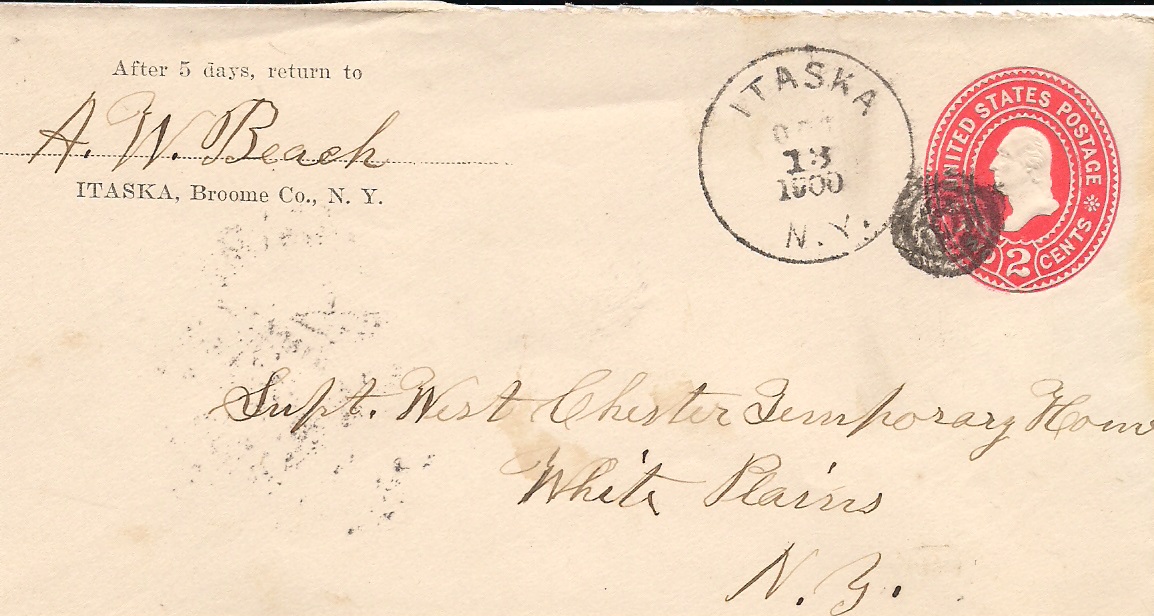 After 5 days, return to
A. W. Beach
ITASKA, Broome Co., N. Y.
ITASKA
OCT
13
1900
N.Y.
UNITED STATES POSTAGE
2 CENTS
Supt. West Chester Temporary Home
White Plains
N. Y.